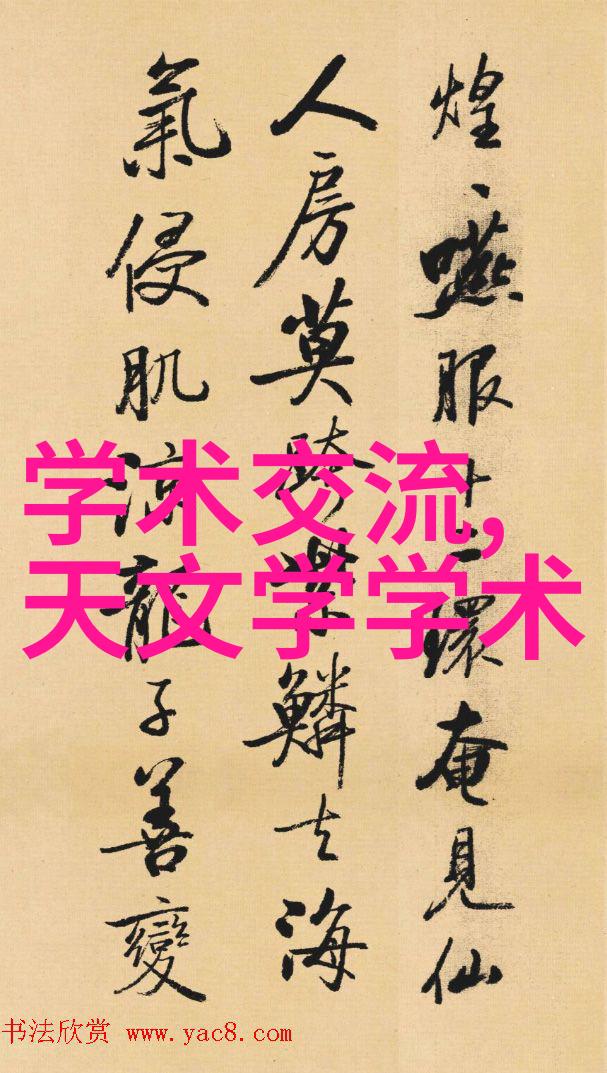 煌、嚥服十二環奄見仙
人房莫跨紫鱗去海
氣侵肌涼龍子善變
学术交流,
天文学学术
书法欣赏 www.yac8.com